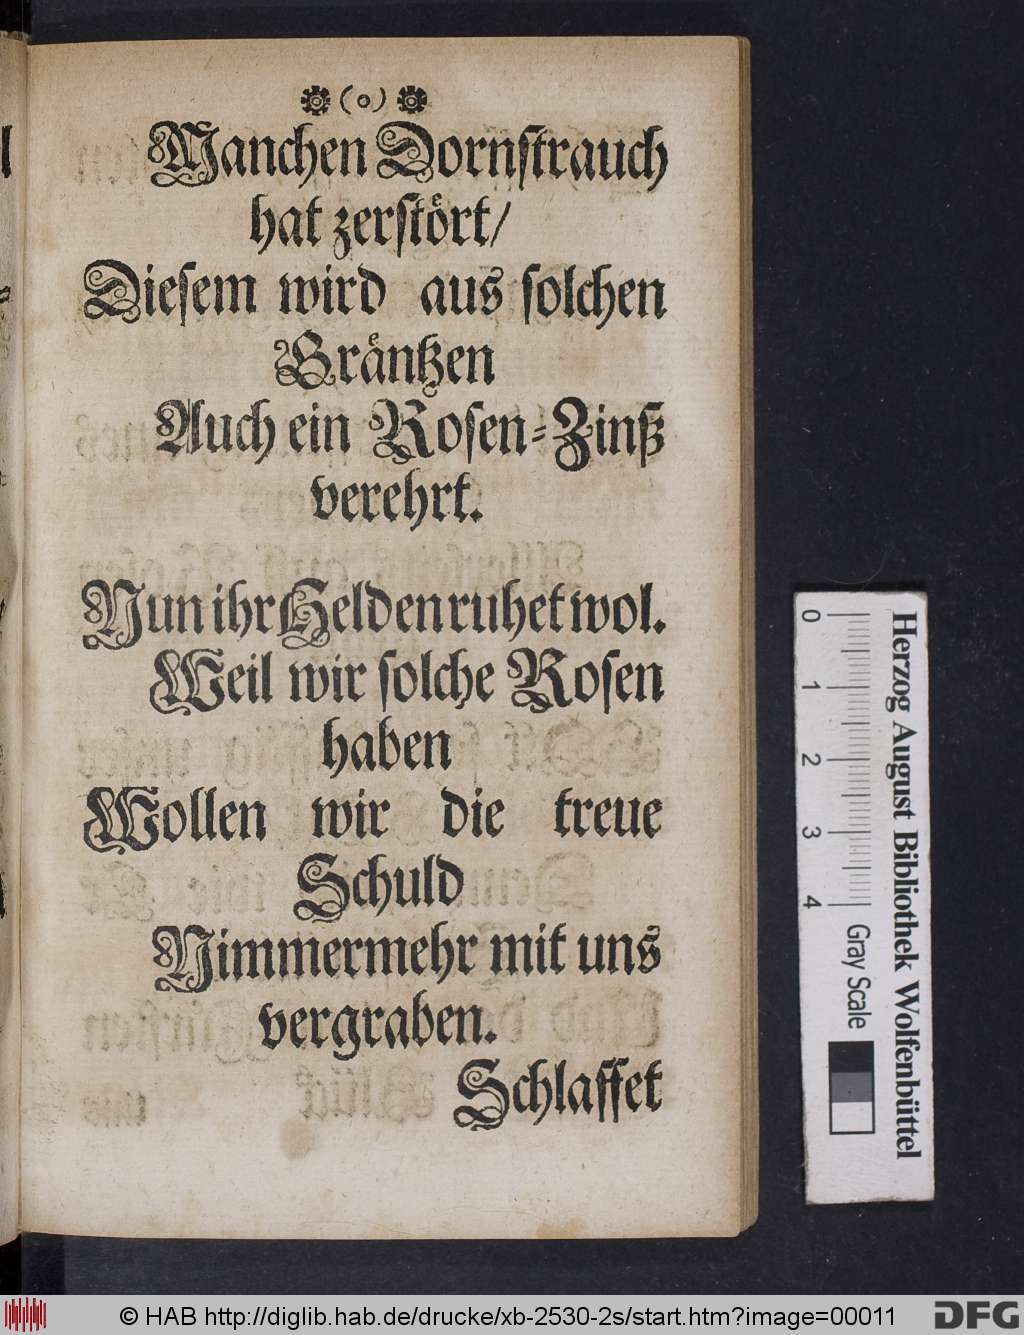 (o)
Manchen Dornstrauch
hat zerstört/
Diesem wird aus solchen
Gräntzen
Auch ein Rosen-Zinß
verehrt.
Nun ihr Helden ruhet wol.
Weil wir solche Rosen
haben
Wollen wir die treue
Schuld
Nimmermehr mit uns
vergraben.
Schlaffet
Herzog August Bibliothek Wolfenbüttel
0 1 2 3 4 Gray Scale
© HAB http://diglib.hab.de/drucke/xb-2530-2s/start.htm?image=00011
DFG